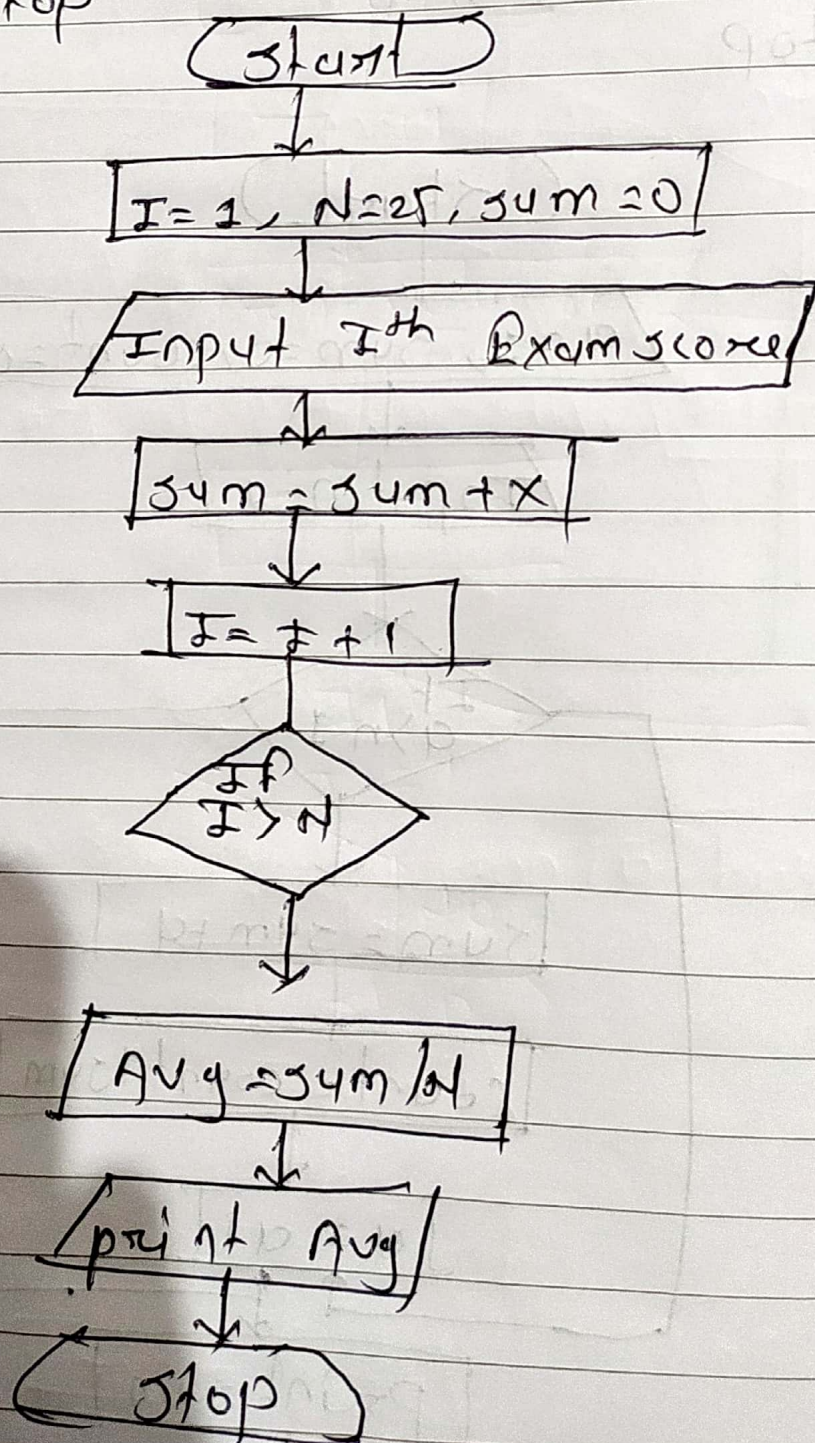 top
Start
I = 1, N=25, sum = 0
Input Ith Exam score
sum = sum + x
I = I + 1
If
I > N
Avg = sum / N
print Avg
Stop